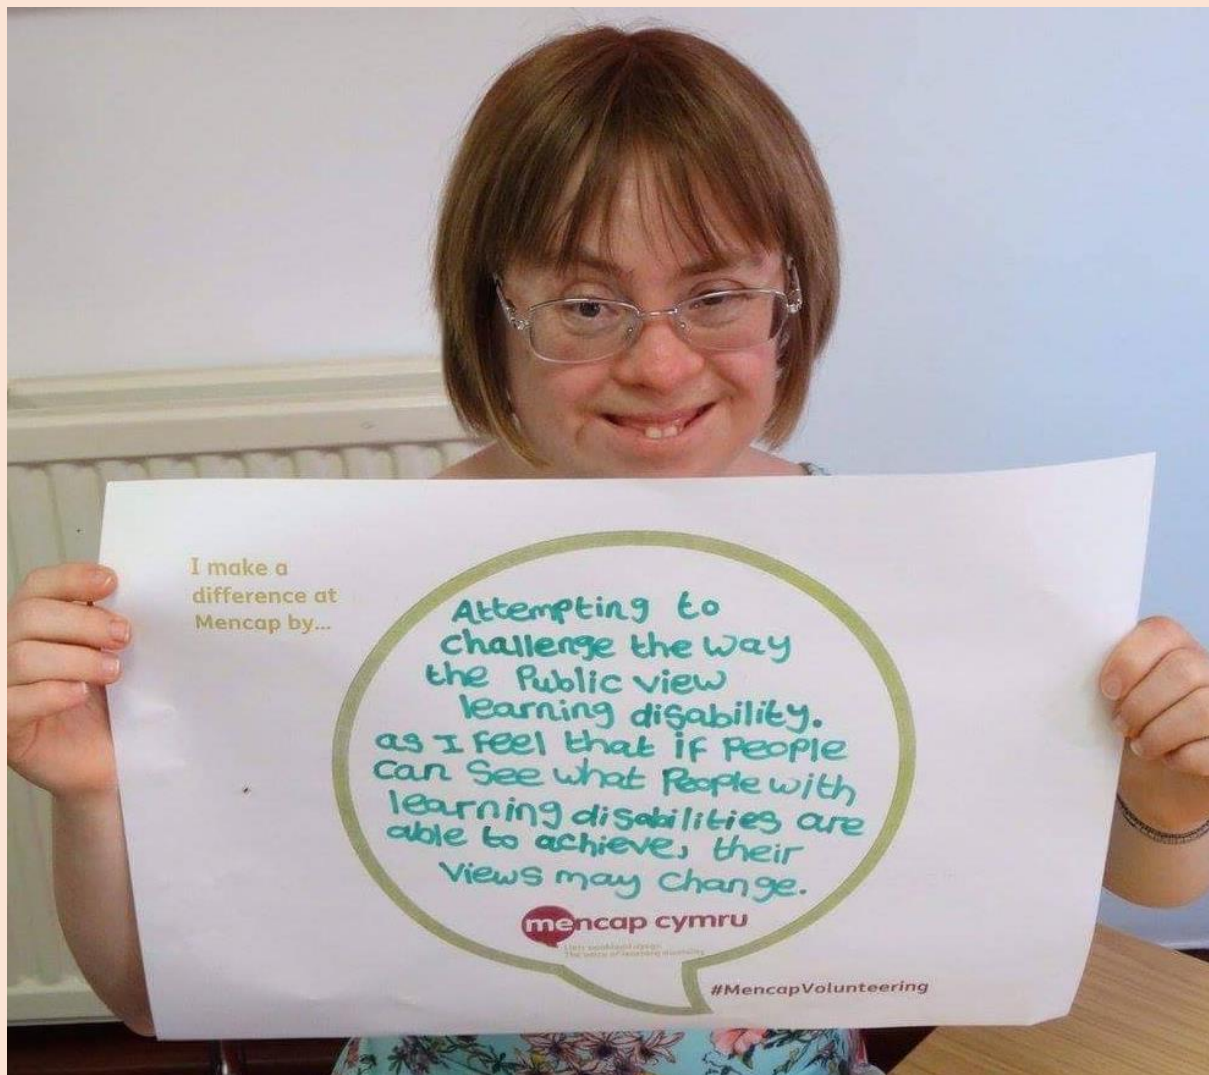 I make a
difference at
Mencap by...
Attempting to
challenge the way
the Public view
learning disability.
as I feel that if People
can See what People with
learning disabilities are
able to achieve, their
views may change.
mencap cymru
The voice of learning disability
#MencapVolunteering